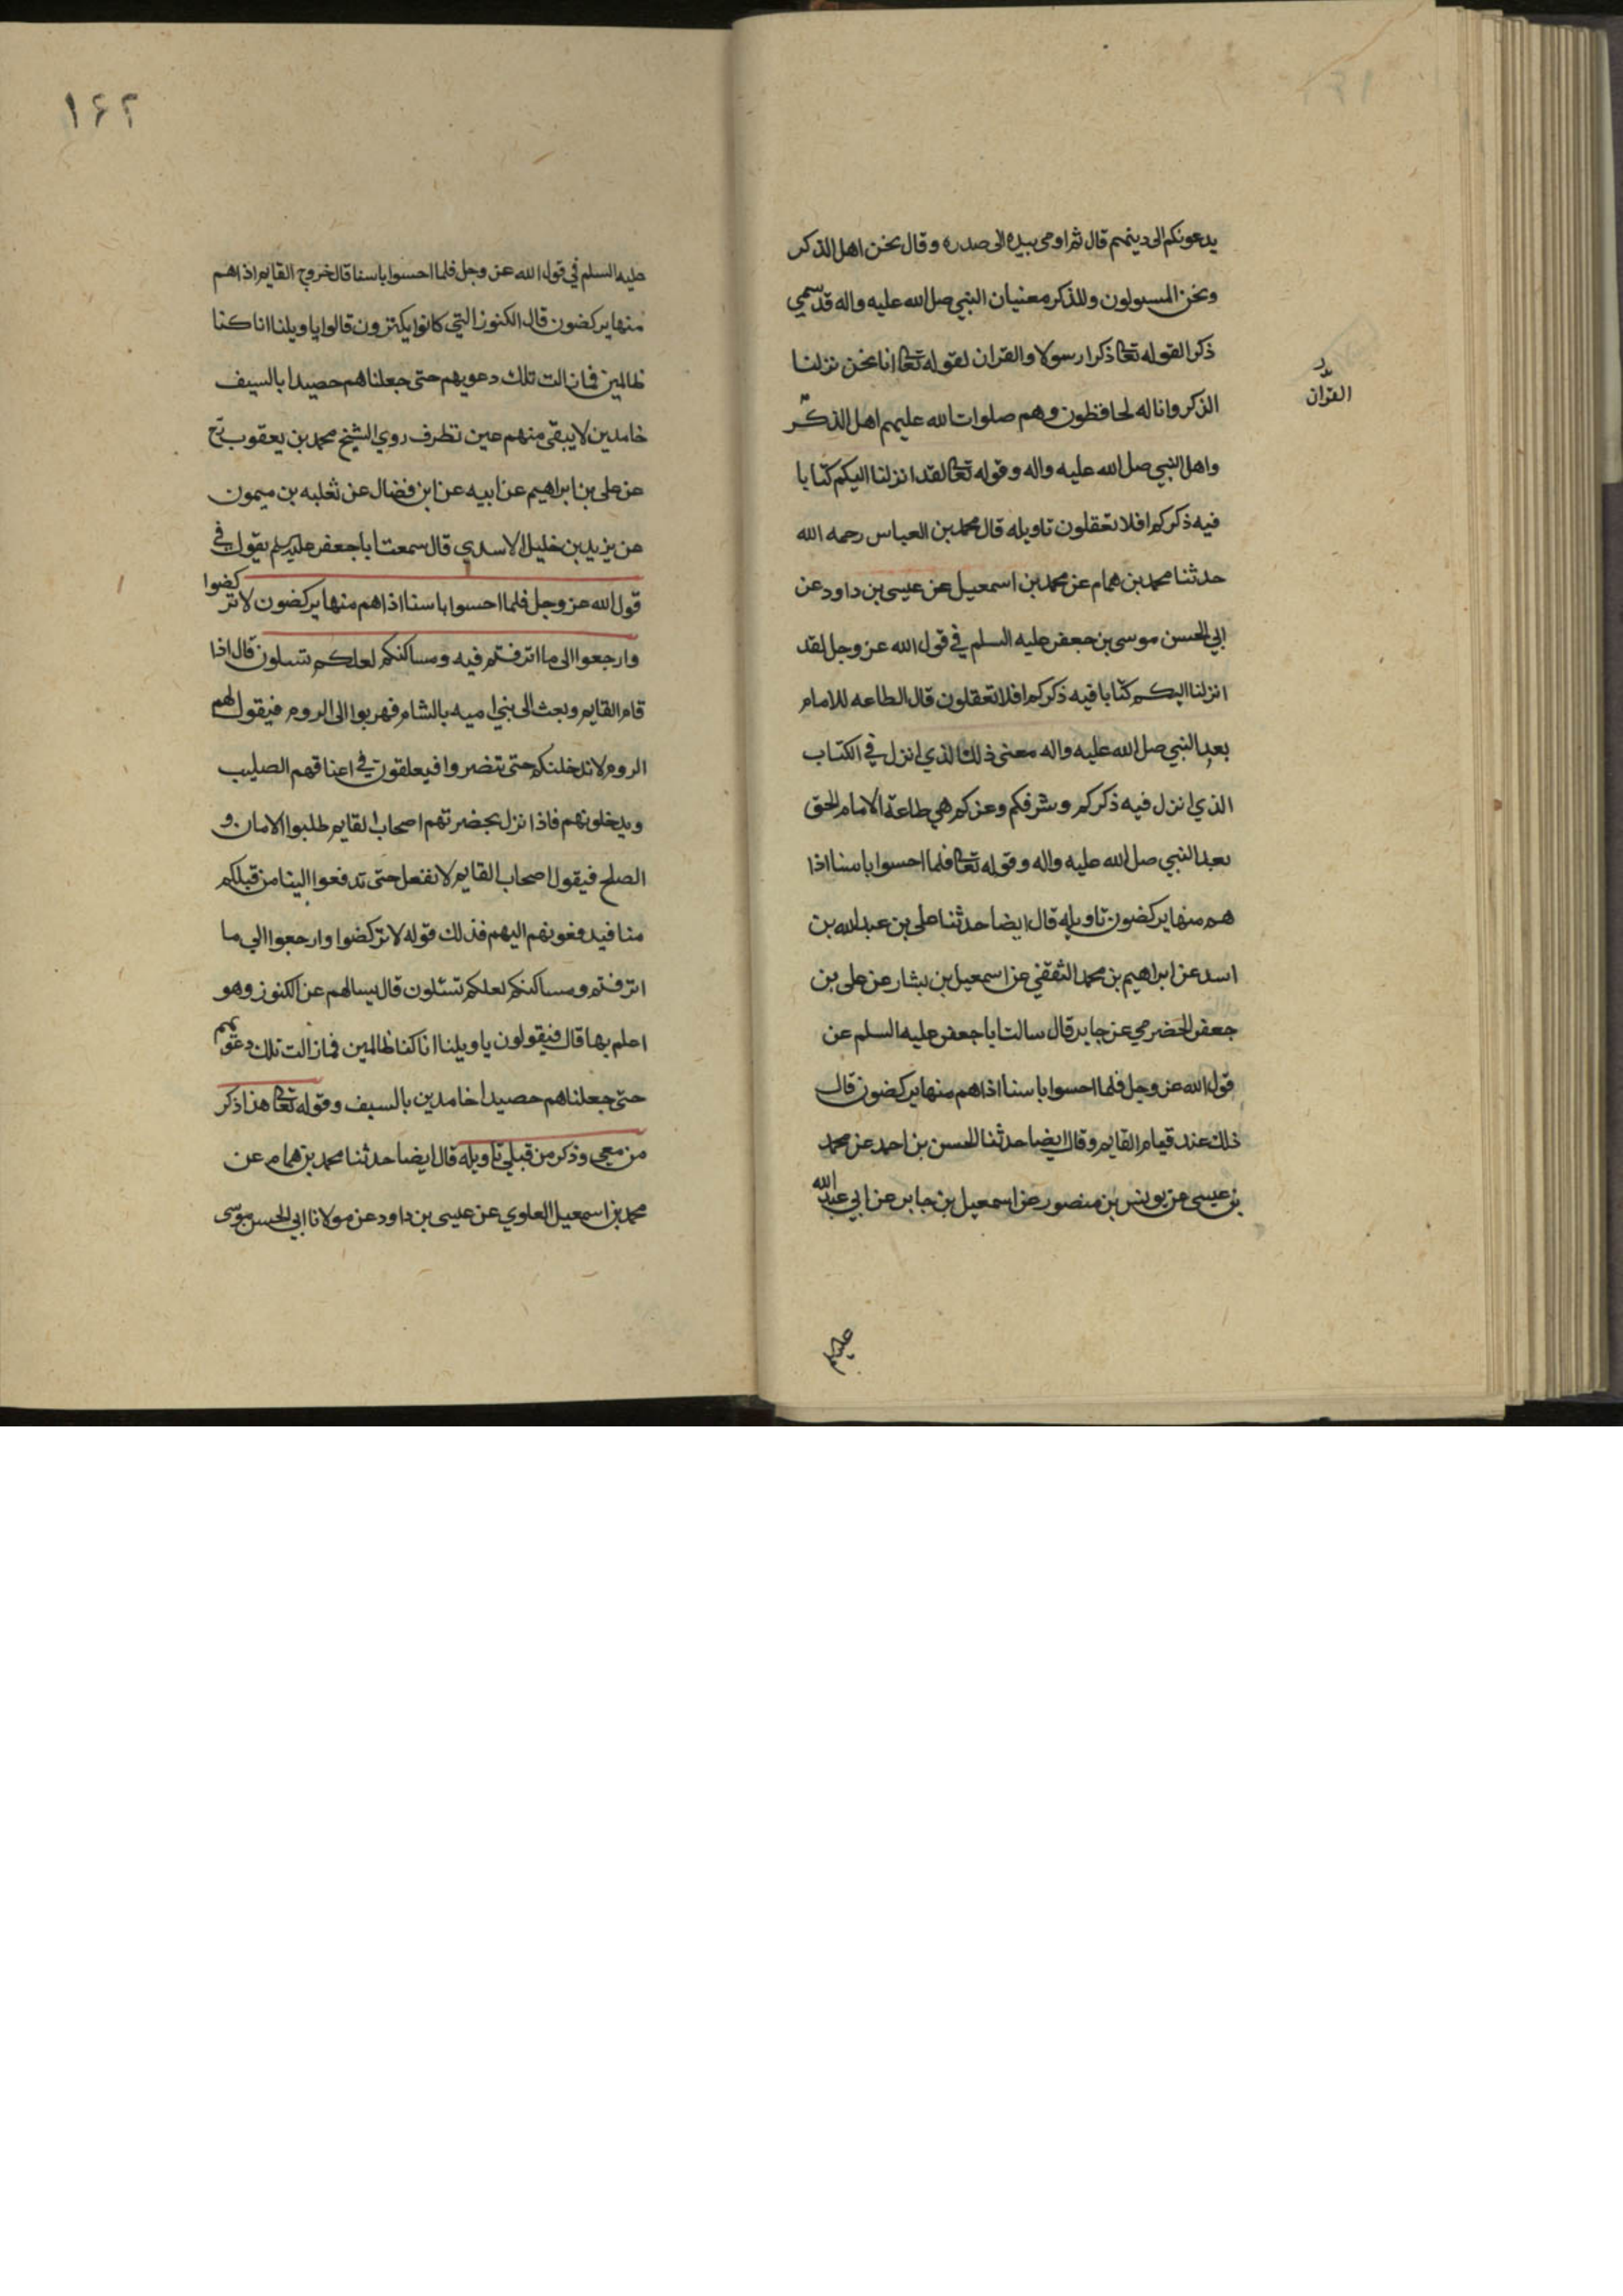 يدعونكم الى دينهم قال ثم اومى بيده الى صدره وقال نحن اهل الذكر
ونحن المسولون وللذكر معنيان النبي صلى الله عليه واله قد سمي
ذكرا لقوله تعا ذكرا رسولا والقران لقوله تعا انا نحن نزلنا
الذكر وانا له لحافظون وهم صلوات الله عليهم اهل الذكر
القران
واهل النبي صلى الله عليه واله وقوله تعا لقد انزلنا اليكم كتابا
فيه ذكركم افلا تعقلون تاويله قال محمد بن العباس رحمه الله
حدثنا محمد بن همام عن محمد بن اسمعيل عن عيسى بن داود عن
ابي الحسن موسى بن جعفر عليه السلم في قول الله عز وجل لقد
انزلنا اليكم كتابا فيه ذكركم افلا تعقلون قال الطاعه للامام
بعد النبي صلى الله عليه واله معنى ذلك الذي انزل في الكتاب
الذي انزل فيه ذكركم وشرفكم وعزكم هي طاعة الامام الحق
بعد النبي صلى الله عليه واله وقوله تعا فلما احسوا باسنا اذا
هم منها يركضون تاويله قال ايضا حدثنا علي بن عبد الله بن
اسد عن ابراهيم بن محمد الثقفي عن اسمعيل بن بشار عن علي بن
جعفر الحضرمي عن جابر قال سالت ابا جعفر عليه السلم عن
قول الله عز وجل فلما احسوا باسنا اذا هم منها يركضون قال
ذلك عند قيام القايم وقال ايضا حدثنا الحسن بن احمد عن محمد
بن عيسى عن يونس بن منصور عن اسمعيل بن جابر عن ابي عبد الله
عليه السلم
١٦٢
عليه السلم في قول الله عز وجل فلما احسوا باسنا قال خروج القايم اذا هم
منها يركضون قال الكنوز التي كانوا يكنزون قالوا يا ويلنا انا كنا
ظالمين فما زالت تلك دعويهم حتى جعلناهم حصيدا بالسيف
خامدين لا يبقى منهم عين تطرف روي الشيخ محمد بن يعقوب رح
عن علي بن ابراهيم عن ابيه عن ابن فضال عن ثعلبه بن ميمون
عن يزيد بن خليل الاسدي قال سمعت ابا جعفر عليه السلم يقول في
قول الله عز وجل فلما احسوا باسنا اذا هم منها يركضون لا تركضوا
وارجعوا الى ما اترفتم فيه ومساكنكم لعلكم تسلون قال اذا
قام القايم وبعث الى بني اميه بالشام فهربوا الى الروم فيقول لهم
الروم لا ندخلنكم حتى تتضروا فيعلقون في اعناقهم الصليب
ويدخلونهم فاذا نزل بحضرتهم اصحاب القايم طلبوا الامان و
الصلح فيقول اصحاب القايم لا نفعل حتى تدفعوا الينا من قبلكم
منا فيدفعونهم اليهم فذلك قوله لا تركضوا وارجعوا الي ما
اترفتم ومساكنكم لعلكم تسئلون قال يسالهم عن الكنوز وهو
اعلم بها قال فيقولون يا ويلنا انا كنا ظالمين فما زالت تلك دعويهم
حتى جعلناهم حصيدا خامدين بالسيف وقوله تعا هذا ذكر
من معي وذكر من قبلي تاويله قال ايضا حدثنا محمد بن همام عن
محمد بن اسمعيل العلوي عن عيسى بن داود عن مولانا ابي الحسن موسى